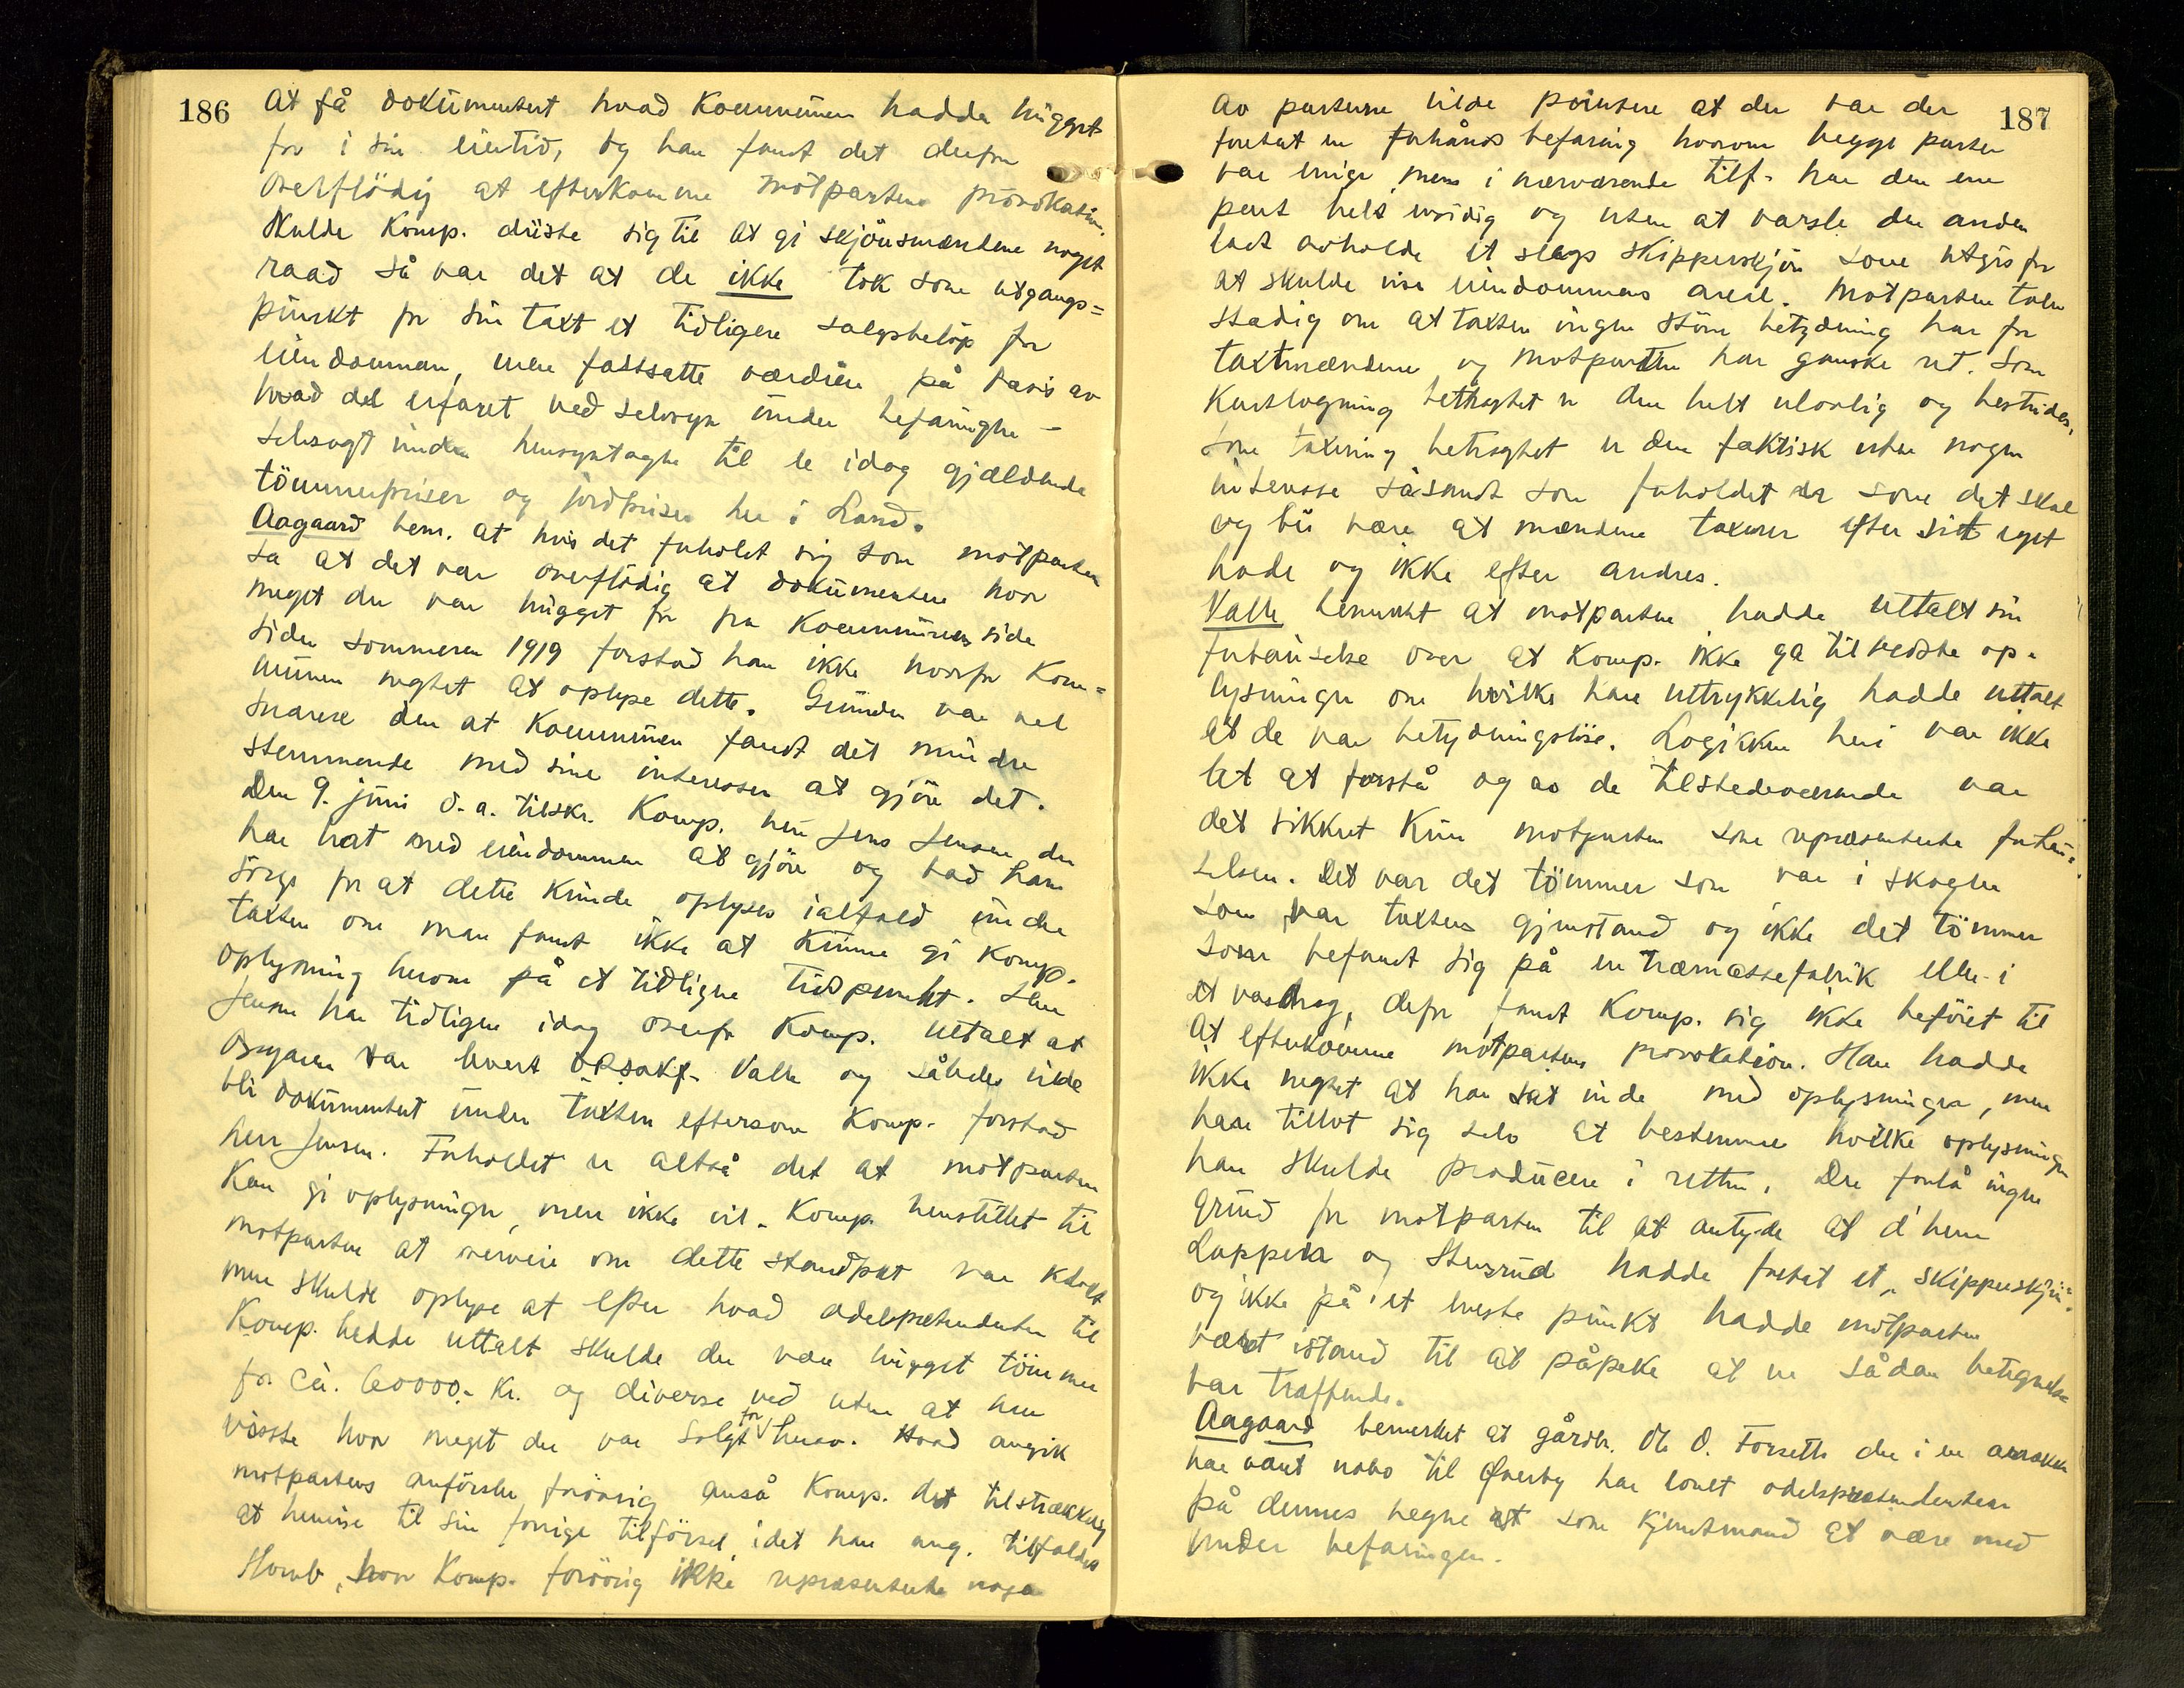 186
at få dokumentert hvad Kommunen hadde hugget
for i sin eietid, og han fandt det derfor
overflödig at efterkomme motpartens provokation.
Skulde Komp. driste sig til at gi skjönsmændene noget
raad så var det at de ikke tok som utgangs=
punkt for sin taxt et tidligere salgsbelöp for
eiendommen, men fastsatte værdien på basis av
hvad del erfaret ved selvsyn under befaringen -
selvsagt under hensyntagen til le idag gjældende
tömmerpriser og jordpriser her i Land.
Aagaard bem. at hvis det forholdt sig som motparten
sa at det var overflödig at dokumentere hvor
meget der var hugget for fra Kommunens side
siden sommeren 1919 forstod han ikke hvorfor Kom=
munen negtet at oplyse dette. Grunden var vel
snarere den at Kommunen fandt det mindre
stemmende med sine interesser at gjöre det.
Den 9. juni d.a. tilskr. Komp. herr Jens Jensen der
har hat med eiendommen at gjöre og bad ham
sörge for at dette kunde oplyses ialfald under
taxten om man fandt ikke at kunne gi Komp.
oplysning herom på et tidligere tidspunkt. Herr
Jensen har tidligere idag overfor Komp. uttalt at
opgaven var levert o.r.sakf. Valle og således vilde
bli dokumentert under taxten eftersom Komp. forstod
herr Jensen. Forholdet er altså det at motparten
kan gi oplysninger, men ikke vil. Komp. henstillet til
motparten at overveie om dette standpkt var klokt
men skulde oplyse at efter hvad odelsprætendenten til
Komp. hadde uttalt skulde der være hugget tömmer
for ca. 60000.- Kr. og diverse ved uten at han
visste hvor meget der var solgt for herav. Hvad angik
motpartens anförsler forövrig anså Komp. det tilstrækkelig
at henvise til sin forrige tilförsel, idet han ang. tilfældet
Homb, hvor Komp. forövrig ikke repræsenterte nogen
187
av parterne vilde pointere at der var der
foretat en forhånds befaring hvorom begge parter
var enige, mens i nærværende tilf. har den ene
part helt ensidig og uten at varsle den anden
ladt avholde et slags skippersskjön som utgis for
at skulde vise eiendommens areal. Motparten taler
stadig om at taxten ingen större betydning har for
taxtmændene og motparten har ganske ret. Som
Kartlægning betragtet er den helt ulovlig og bestrides,
som taxering betragtet er den faktisk uten nogen
interesse såsandt som forholdet er som det skal
og bör være at mændene taxerer efter sit eget
hode og ikke efter andres.
Valle bemerket at motparten hadde uttalt sin
forbauselse over at Komp. ikke ga tilveiebr op-
lysninger om hvilke han uttrykkelig hadde uttalt
at de var betydningslöse. Logikken heri var ikke
let at forstå og av de tilstedeværende var
det sikkert kun motparten som repræsenterte forbau=
selsen. Det var det tömmer som var i skogen
som var taxtens gjenstand og ikke det tömmer
som befandt sig på en træmassefabrik eller i
et vasdrag, derfor fandt Komp. sig ikke beföiet til
at efterkomme motpartens provokation. Han hadde
ikke negtet at han sat inde med oplysninger, men
han tillot sig selv at bestemme hvilke oplysninger
han skulde producere i retten. Der forelå ingen
grund for motparten til at antyde at d'herrer
Lappen og Stensrud hadde foretat et "skipperskjön"
og ikke på et eneste punkt hadde motparten
været istand til at påpeke at en sådan betegnelse
var træffende.
Aagaard bemerket at gårdbr. Ole O. Forseth der i en aarrække
har været nabo til Överby har lovet odelsprætendenten
på dennes vegne at som kjentmand at være med
under befaringen.